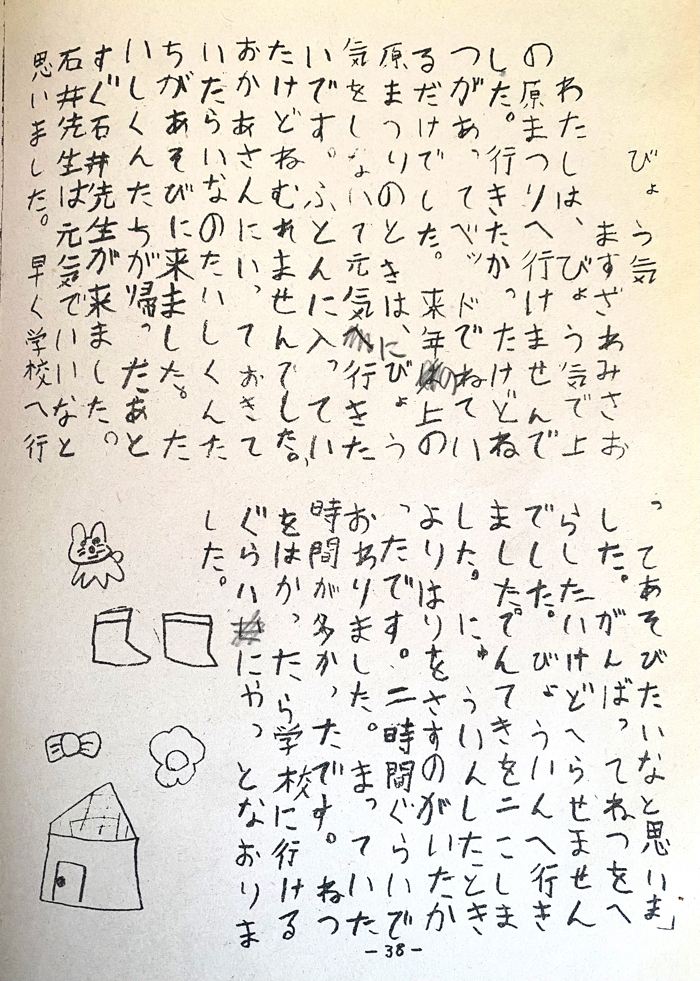 びょう気
ますざわみさお
わたしは、びょう気で上
の原まつりへ行けませんで
した。行きたかったけどね
つがあってベッドでねてい
るだけでした。来年の上の
原まつりのときは、びょう
気をしないて元気に行きた
いです。ふとんに入ってい
たけどねむれませんでした。
おかあさんにいっておきて
いたらいなのたいしくんた
ちがあそびに来ました。た
いしくんたちが帰ったあと
すぐ石井先生が来ました。
石井先生は元気でいいなと
思いました。早く学校へ行
ってあそびたいなと思いま」
した。がんばってねつをへ
らしたいけどへらせません
でした。びょういんへ行き
ました。てんてきを二こしま
した。にゅういんしたとき
よりはりをさすのがいたか
ったです。二時間ぐらいで
おわりました。まっていた
時間が多かったです。ねつ
をはかったら学校に行ける
ぐらいにやっとなおりま
した。
-38-